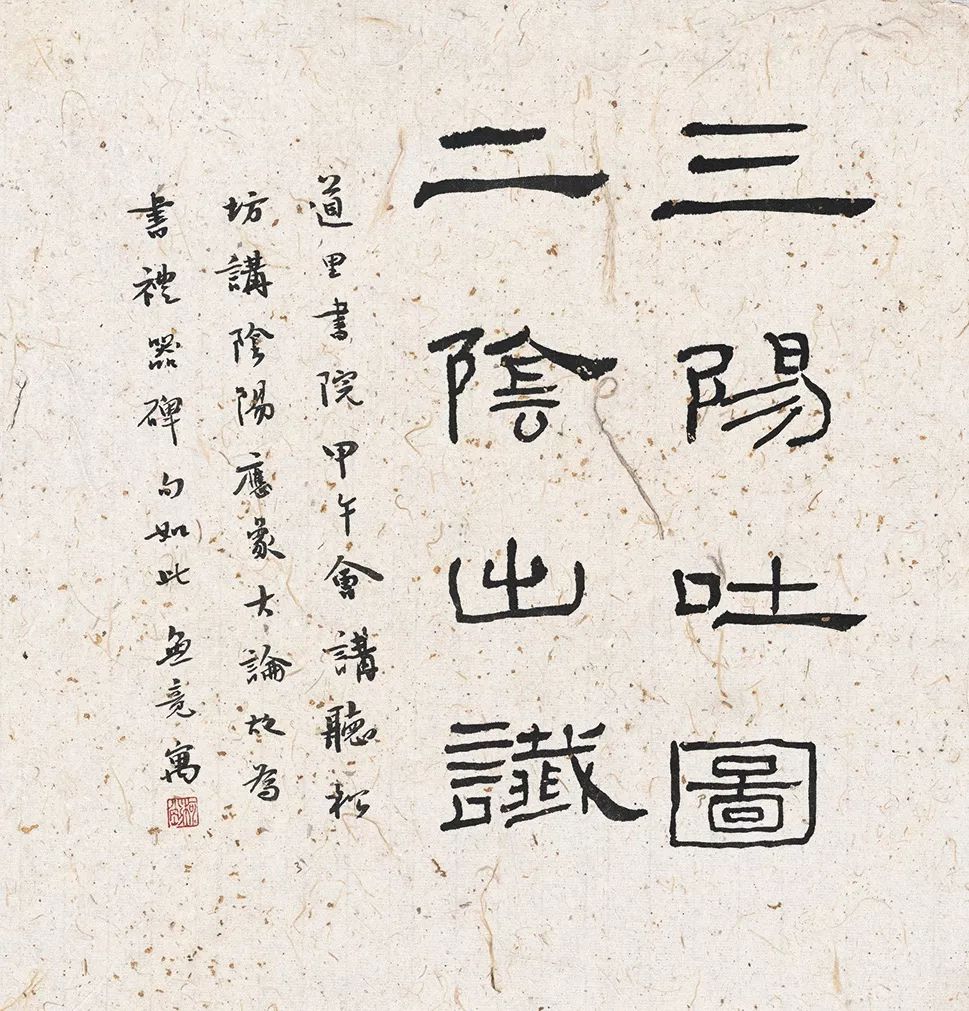 三陽吐圖
二陰出讖
道里書院甲午會講聽松
坊講陰陽應象大論故為
書禮器碑句如此無竟寓